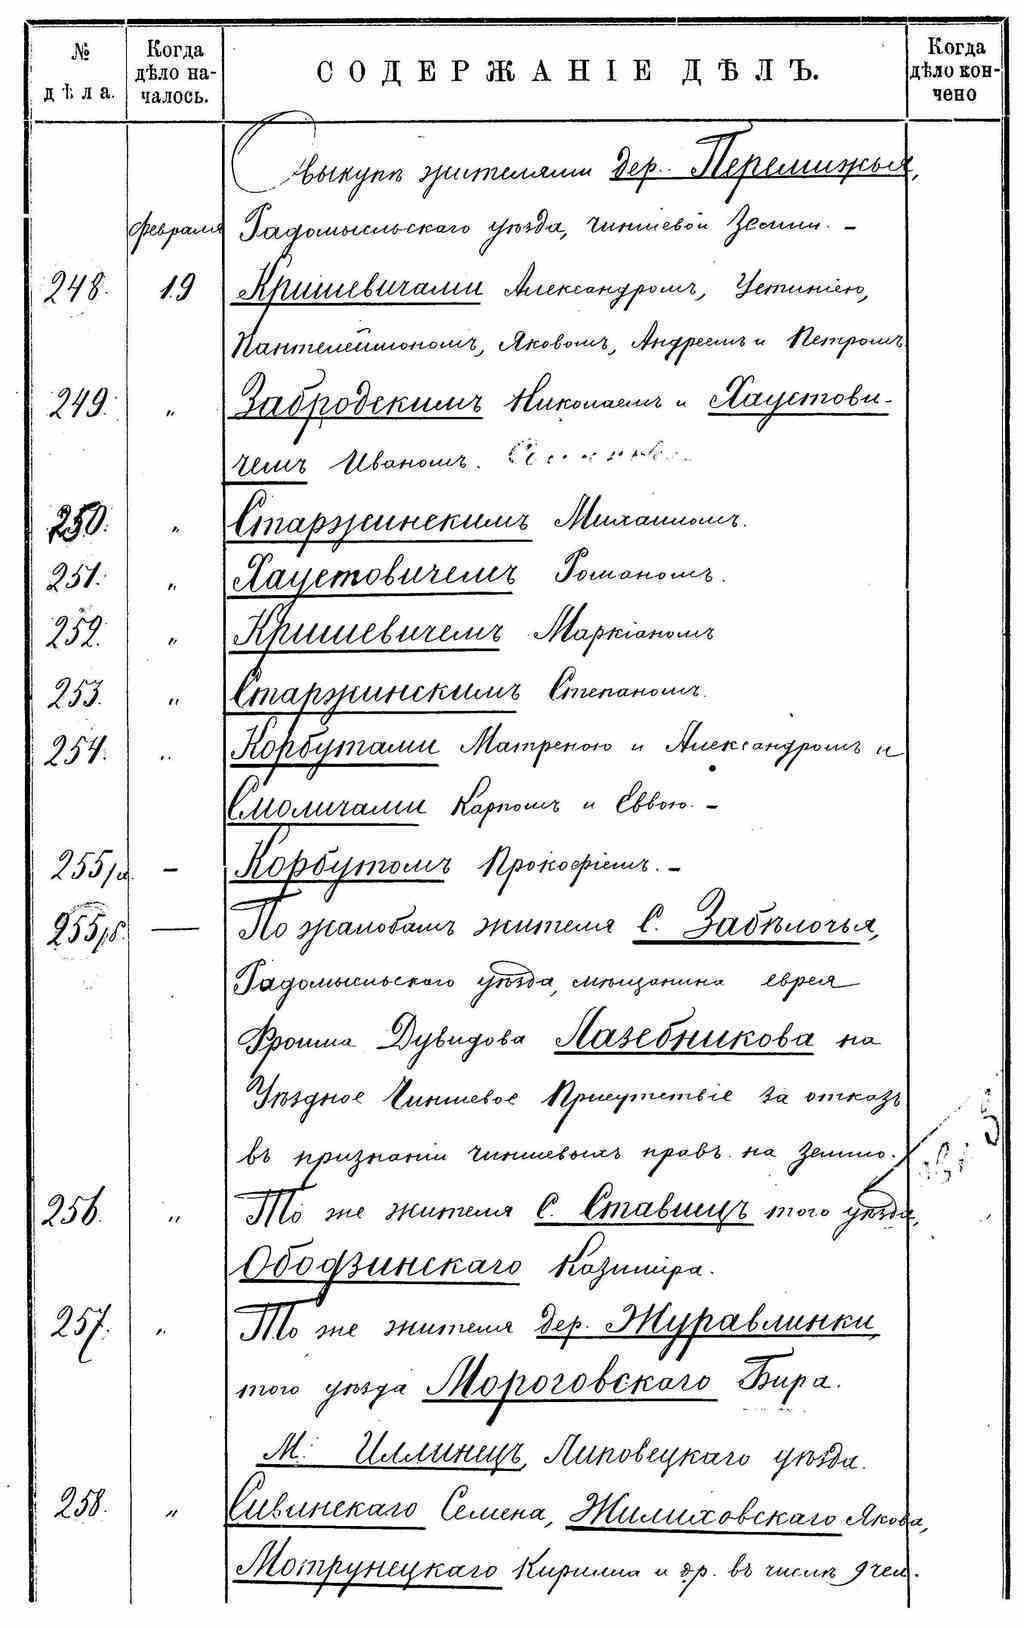 № дѣла.
Когда дѣло началось.
СОДЕРЖАНІЕ ДѢЛЪ.
Когда дѣло кончено
О выкупѣ жителями дер. Перемижья,
февраля Радомысльскаго уѣзда, чиншевой земли. –
248. 19 Кришевичами Александромъ, Устиніею,
Пантелеймономъ, Яковомъ, Андреемъ и Петромъ
249. „ Забродскимъ Николаемъ и Хаустови-
чемъ Иваномъ.
250. „ Старжинскимъ Михаиломъ.
251. „ Хаустовичемъ Романомъ.
252. „ Кришевичемъ Маркіаномъ
253. „ Старжинскимъ Степаномъ.
254. „ Корбутами Матреною и Александромъ и
Смоличами Карпомъ и Еввою. –
255/а. – Корбутомъ Прокофіемъ. –
255/б. — По жалобамъ жителя с. Забѣлочья,
Радомысльскаго уѣзда, мѣщанина еврея
Фроима Дувидова Лазебникова на
Уѣздное Чиншевое Присутствіе за отказъ
въ признаніи чиншевыхъ правъ на землю.
256. „ То же жителя с. Ставищъ того уѣзда,
Ободзинскаго Казиміра.
257. „ То же жителя дер. Журавлинки,
того уѣзда Мороговскаго Бира.
М. Иллинецъ, Липовецкаго уѣзда.
258. „ Сивинскаго Семена, Жилиховскаго Якова,
Мотрунецкаго Кирилла и др. въ числѣ 9 чел.